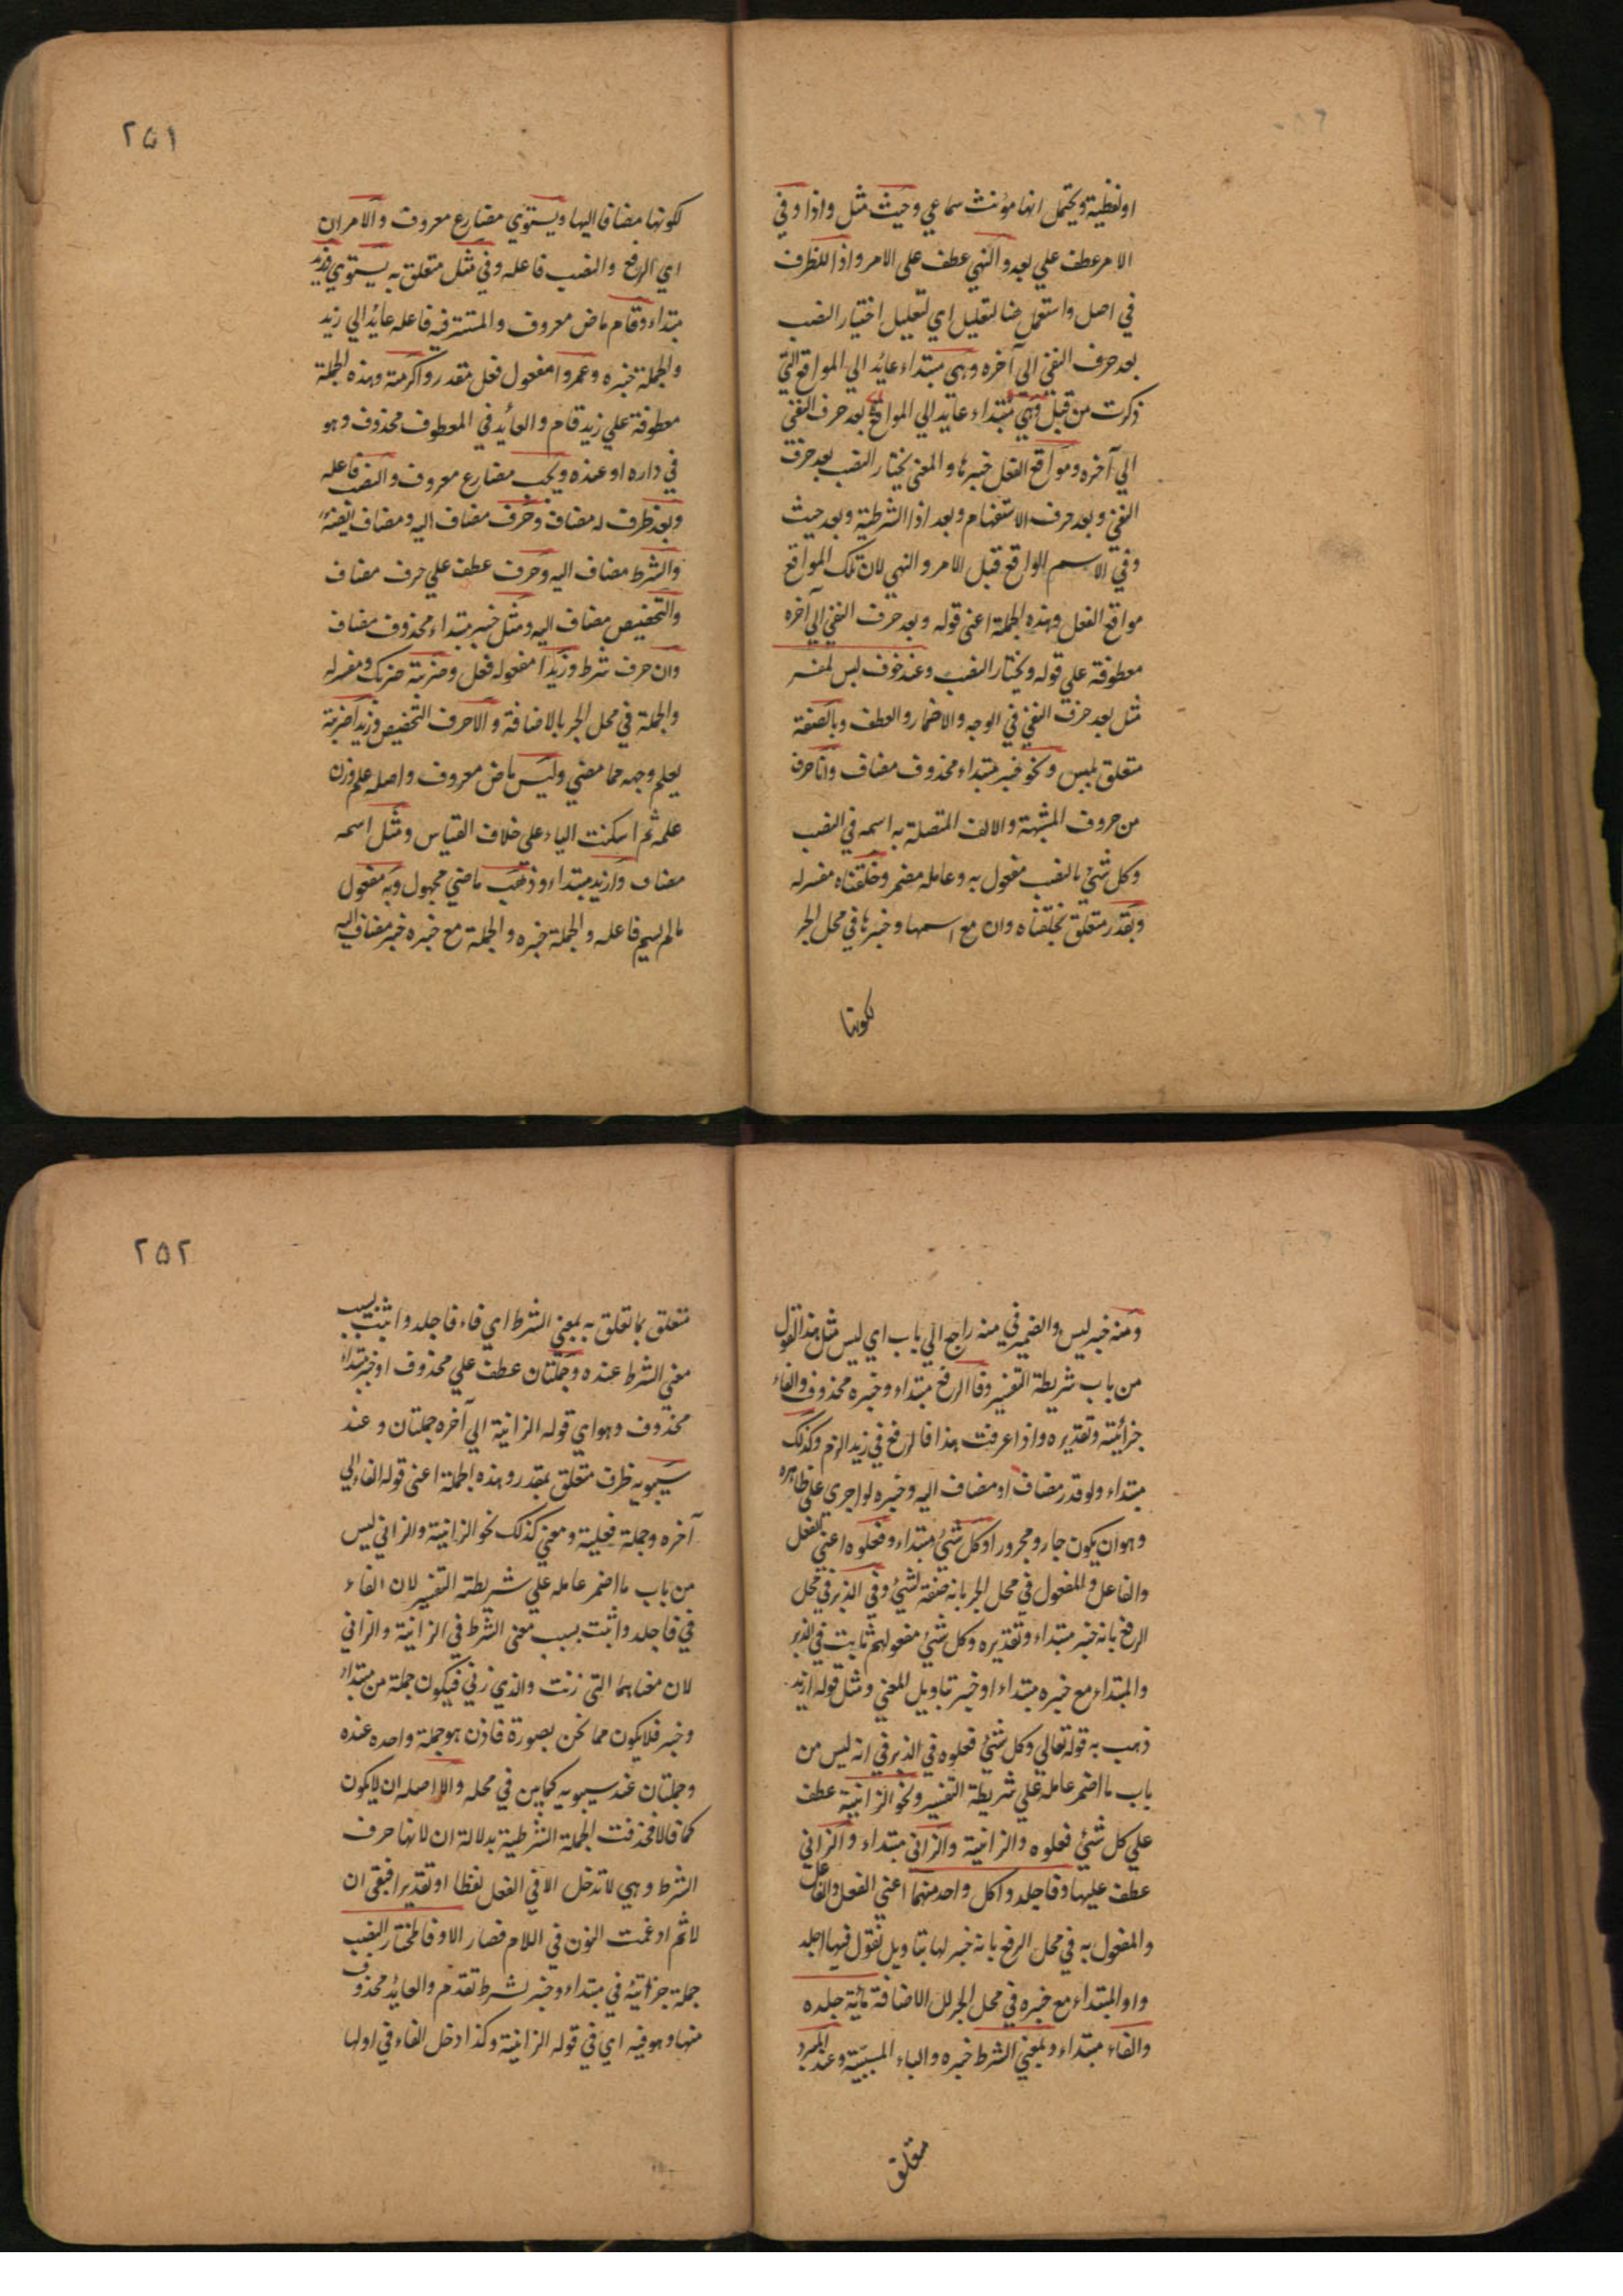 او لفظية ويحتمل انها مؤنث سماعي وحيث مثل واذا وفي
الامر عطف علي بعد والنهي عطف علي الامر واذا للظرف
في اصل واستعمل هنا لتعليل اي لتعليل اختيار النصب
بعد حرف النفي الي آخره وهي مبتداء عايد الي المواقع التي
ذكرت من قبل وهي مبتداء عايد الي المواقع بعد حرف النفي
الي آخره ومواقع الفعل خبرها والمعني يختار النصب بعد حرف
النفي وبعد حرف الاستفهام وبعد اذا الشرطية وبعد حيث
وفي الاسم الواقع قبل الامر والنهي لان تلك المواقع
مواقع الفعل وهذه الجملة اعني قوله وبعد حرف النفي الي آخره
معطوفة علي قوله ويختار النصب وعند خوف لبس المفسر
مثل بعد حرف النفي في الوجه والاضمار والعطف وبالصفة
متعلق بلبس ونحو خبر مبتداء محذوف مضاف وانا حرف
من حروف المشبهة والالف المتصلة به اسمه في النصب
وكل شئ بالنصب مفعول به وعامله مضمر وخلقناه مفسر له
وبقدر متعلق بخلقناه وان مع اسمها وخبرها في محل الجر
لكونها
٢٥١
لكونها مضافا اليها ويستوي مضارع معروف والامران
اي الرفع والنصب فاعله وفي مثل متعلق به يستوي وزيد
مبتداء وقام ماض معروف والمستتر فيه فاعله عايد الي زيد
والجملة خبره وعمروا مفعول فعل مقدر واكرمته وهذه الجملة
معطوفة علي زيد قام والعائد في المعطوف محذوف وهو
في داره او عنده ويجب مضارع معروف والنصب فاعله
وبعد ظرف له مضاف وحرف مضاف اليه ومضاف ايضا
والشرط مضاف اليه وحرف عطف علي حرف مضاف
والتحضيض مضاف اليه ومثل خبر مبتداء محذوف مضاف
وان حرف شرط وزيدا مفعوله فعل وضربته ضربك ومفسر له
والجملة في محل الجر بالاضافة والا حرف التحضيض وزيدا ضربته
يعلم وجهه مما مضي وليس ماض معروف واصله علم وزن
علمه ثم اسكنت الياء علي خلاف القياس ومثل اسمه
مضاف وازيد مبتداء وذهب ماضي مجهول وبه مفعول
مالم يسم فاعله والجملة خبره والجملة مع خبره خبر مضاف اليه
ومنه خبر ليس والضمير في منه راجع الي باب اي ليس مثل هذا القول
من باب شريطة التفسير وفا الرفع مبتداء وخبره محذوف والفاء
جزائية وتقديره واذا عرفت هذا فالرفع في زيد الزم وكذلك
مبتداء ولو قدر مضاف او مضاف اليه وخبره لو اجري علي ظاهره
وهو ان يكون جار ومجرور او كل شئ مبتداء وفعلوه اعني الفعل
والفاعل والمفعول في محل الجر بانه صفة لشئ وفي الزبر في محل
الرفع بانه خبر مبتداء وتقديره وكل شئ مفعولهم ثابت في الزبر
والمبتداء مع خبره مبتداء او خبر بتاويل المعني ومثل قوله ازيد
ذهب به قوله تعالي وكل شئ فعلوه في الزبر في انه ليس من
باب ما اضمر عامله علي شريطة التفسير ونحو الزانية عطف
علي كل شئ فعلوه والزانية والزاني مبتداء والزاني
عطف عليها وفاجلدوا كل واحد منهما اعني الفعل والفاعل
والمفعول به في محل الرفع بانه خبر لها بتاويل نقول فيها اجلد
واو المبتداء مع خبره في محل الجر الاضافة مائة جلده
والفاء مبتداء وبمعني الشرط خبره والباء السببية وعند المبرد
متعلق
٢٥٢
متعلق بما تعلق به بمعني الشرط اي فاء فاجلدوا ثبت بسبب
معني الشرط عنده وجملتان عطف علي محذوف او خبر مبتداء
محذوف وهو اي قوله الزانية الي آخره جملتان وعند
سيبويه ظرف متعلق بمقدر وهذه الجملة اعني قوله الفاء الي
آخره وجملة فعلية ومعني كذلك نحو الزانية والزاني ليس
من باب ما اضمر عامله علي شريطة التفسير لان الفاء
في فاجلدوا ثبت بسبب معني الشرط في الزانية والزاني
لان معناهما التي زنت والذي زني فيكون جملة من مبتداء
وخبر فلا يكون مما نحن بصورة فاذن هو جملة واحده عنده
وجملتان عند سيبويه كما بين في محله والا اصله ان لا يكون
كما قالا فحذفت الجملة الشرطية بدلالة ان لانها حرف
الشرط وهي لا تدخل الا في الفعل لفظا او تقديرا فبقي ان
لا ثم ادغمت النون في اللام فصار الا وفالمختار النصب
جملة جزائية في مبتداء وخبر لشرط تقدم والعائد محذوف
منها وهو فيه اي في قوله الزانية وكذا دخل الفاء في اولها